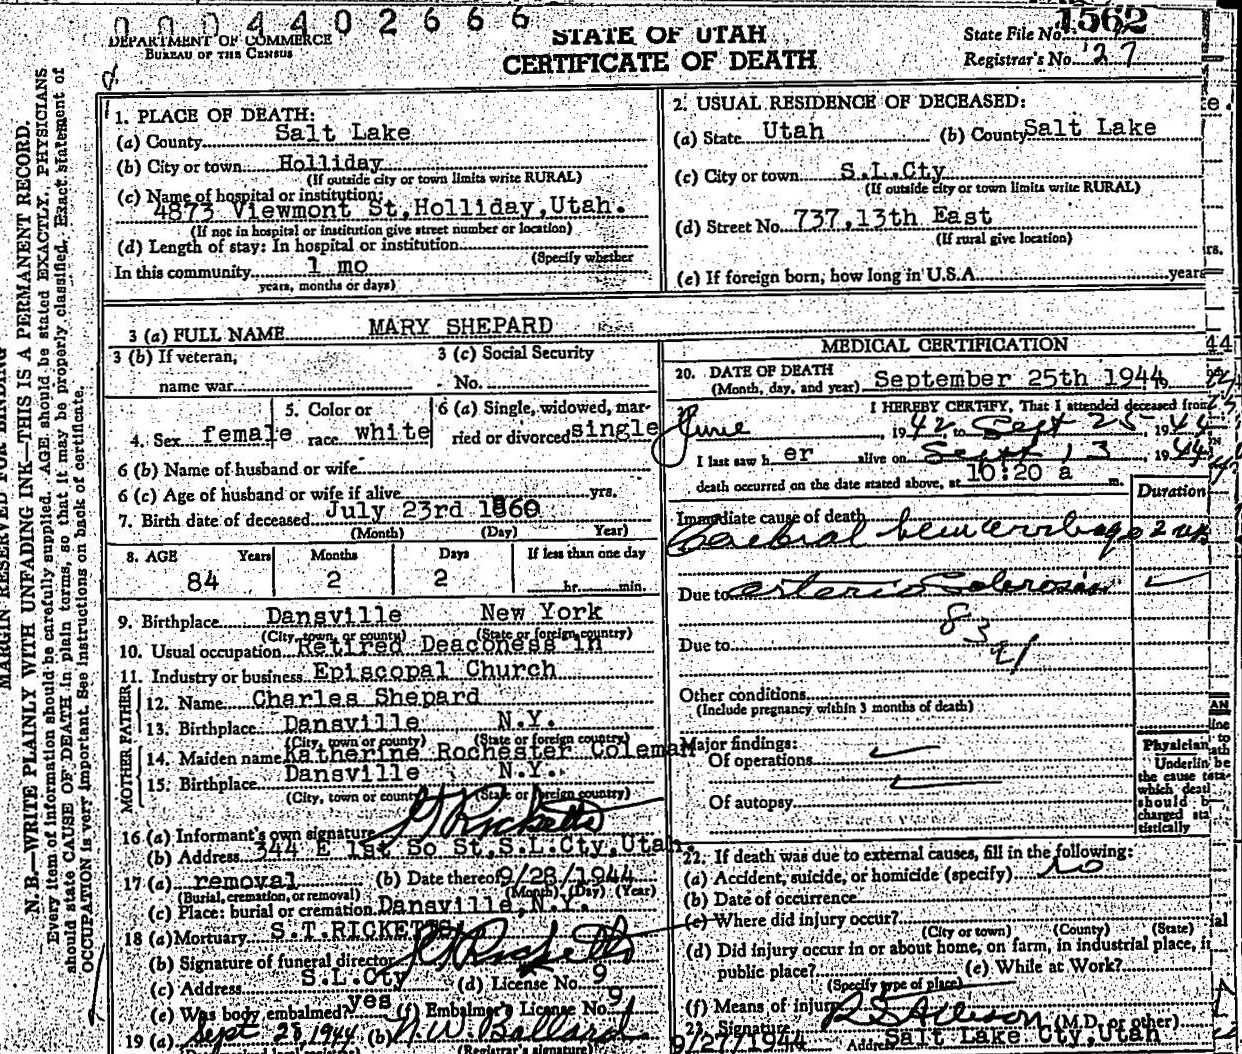 0004402666
DEPARTMENT OF COMMERCE
BUREAU OF THE CENSUS
STATE OF UTAH
CERTIFICATE OF DEATH
State File No. 1562
Registrar's No. 27
MARGIN RESERVED FOR BINDING
N. B.—WRITE PLAINLY WITH UNFADING INK—THIS IS A PERMANENT RECORD.
Every item of information should be carefully supplied. AGE should be stated EXACTLY. PHYSICIANS
should state CAUSE OF DEATH in plain terms, so that it may be properly classified. Exact statement of
OCCUPATION is very important. See instructions on back of certificate.
1. PLACE OF DEATH:
(a) County Salt Lake
(b) City or town Holliday
(If outside city or town limits write RURAL)
(c) Name of hospital or institution:
4873 Viewmont St,Holliday,Utah.
(If not in hospital or institution give street number or location)
(d) Length of stay: In hospital or institution
(Specify whether
In this community 1 mo
years, months or days)
2. USUAL RESIDENCE OF DECEASED:
(a) State Utah (b) County Salt Lake
(c) City or town S.L.Cty
(If outside city or town limits write RURAL)
(d) Street No. 737,13th East
(If rural give location)
(e) If foreign born, how long in U.S.A. years
3 (a) FULL NAME MARY SHEPARD
3 (b) If veteran, 3 (c) Social Security
name war No.
4. Sex female 5. Color or race white 6 (a) Single, widowed, married or divorced single
6 (b) Name of husband or wife
6 (c) Age of husband or wife if alive yrs.
7. Birth date of deceased July 23rd 1860
(Month) (Day) Year)
8. AGE Years Months Days If less than one day
84 2 2 hr. min.
9. Birthplace Dansville New York
(City, town, or county) (State or foreign country)
10. Usual occupation Retired Deaconess in
11. Industry or business Episcopal Church
FATHER
12. Name Charles Shepard
13. Birthplace Dansville N.Y.
(City, town or county) (State or foreign country)
MOTHER
14. Maiden name Katherine Rochester Coleman
15. Birthplace Dansville N.Y.
(City, town or county) (State or foreign country)
16 (a) Informant's own signature Ricketts
(b) Address 344 E 1st So St,S.L.Cty,Utah.
17 (a) removal (b) Date thereof 9/28/1944
(Burial, cremation, or removal) (Month) (Day) (Year)
(c) Place: burial or cremation Dansville,N.Y.
18 (a) Mortuary S.T.RICKETTS
(b) Signature of funeral director Ricketts
(c) Address S.L.Cty (d) License No. 9
(e) Was body embalmed? yes (f) Embalmer's License No. 9
19 (a) Sept 28, 1944 (b) N.W. Ballard
(Registrar's signature)
MEDICAL CERTIFICATION
20. DATE OF DEATH
(Month, day, and year) September 25th 1944
I HEREBY CERTIFY, That I attended deceased from
June, 1942 to Sept 25, 1944
I last saw her alive on Sept 13 1944
death occurred on the date stated above, at 10:20 a m.
Duration
Immediate cause of death
Cerebral hemorrhage
Due to arterio Sclerosis
83
Due to
Other conditions
(Include pregnancy within 3 months of death)
Major findings:
Of operations
Of autopsy
Physician
Underline
the cause to
which death
should be
charged sta-
tistically
22. If death was due to external causes, fill in the following:
(a) Accident, suicide, or homicide (specify) no
(b) Date of occurrence
(c) Where did injury occur?
(City or town) (County) (State)
(d) Did injury occur in or about home, on farm, in industrial place, in
public place? (e) While at Work?
(Specify type of place)
(f) Means of injury
Signature R S Allison (M.D. or other)
9/27/1944 Address Salt Lake Cty,Utah